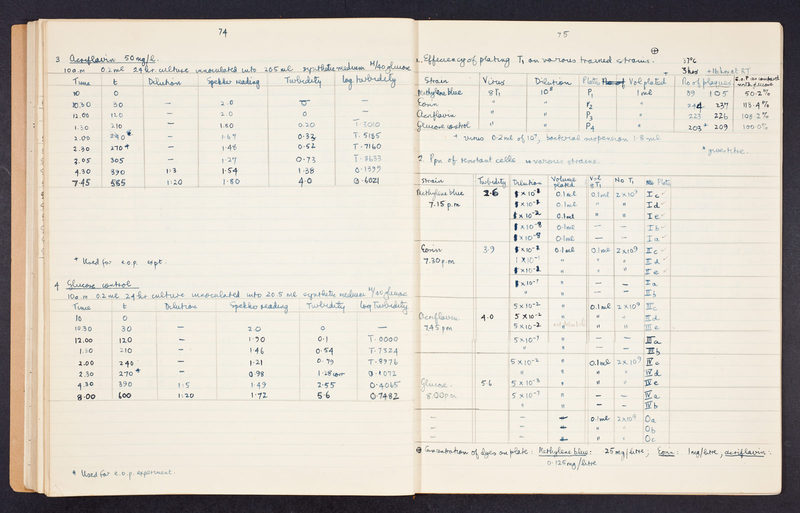 74
3 Acriflavin 50mg/l.
10 a.m 0.2 ml 24 hr. culture inoculated into 20.5 ml synthetic medium M/40 glucose
Time t Dilution Spekker reading Turbidity log turbidity
10 0
10.30 30 — 2.0 0 —
12.00 120 — 2.0 0 —
1.30 210 — 1.80 0.20 T.3010
2.00 240 — 1.67 0.33 T.5185
2.30 270* — 1.48 0.52 T.7160
3.05 305 — 1.27 0.73 T.8633
4.30 390 1:3 1.54 1.38 0.1399
7.45 585 1:20 1.80 4.0 0.6021
* Used for e.o.p. expt.
4 Glucose control
10 a.m 0.2 ml 24 hr culture inoculated into 20.5 ml synthetic medium M/40 glucose
Time t Dilution Spekker reading Turbidity log Turbidity
10 0
10.30 30 — 2.0 0 —
12.00 120 — 1.90 0.1 T.0000
1.30 210 — 1.46 0.54 T.7324
2.00 240 — 1.21 0.79 T.8976
2.30 270* — 0.98 1.28 0.1072
4.30 390 1:5 1.49 2.55 0.4065
8.00 600 1:20 1.72 5.6 0.7482
* Used for e.o.p. experiment.
75
1. Efficiency of plating T1 on various trained strains.
⊕
37°C
3 hrs + 16 hrs at RT
Strain Virus Dilution Plate Vol plated No of plaques e.o.p. as compared with glucose
Methylene blue 8T1 10⁸ P1 1ml 89 105 50.2%
Eosin " " P2 " 244 237 113.4%
Acriflavin " " P3 " 223 226 108.2%
Glucose control " " P4 " 203* 209 100.0%
+ virus 0.2ml of 10⁷, bacterial suspension 1.8 ml
2. Ppn. of resistant cells in various strains.
Strain Turbidity Dilution Volume plated Vol 8T1 No T1 Plate
Methylene blue 2.6 0.1ml 0.1ml 2 x 10⁹ I c
7.15 p.m 0.1ml " " I d
0.1ml " " I e
0.1ml — — I b
0.1ml — — I a
Eosin 3.9 0.1ml 0.1ml 2 x 10⁹ II c
7.30 p.m 1 x 10⁻¹ " " " II d
" " " II e
" — — II a
" " — — II b
5 x 10⁻² " 0.1ml 2 x 10⁹ III c
Acriflavin 4.0 5 x 10⁻² " " " III d
7.45 pm 5 x 10⁻² " " III e
5 x 10⁻⁷ " — — III a
" " — — III b
5 x 10⁻² " 0.1ml 2 x 10⁹ IV c
" " " " IV d
Glucose. 5.6 5 x 10⁻² " " " IV e
8.00 p.m 5 x 10⁻⁷ " — — IV a
" " — — IV b
— — 0.1ml 2 x 10⁹ Oa
— — " " Ob
— — " " Oc
⊕ Concentration of dyes on plate: Methylene blue: 25mg/litre; Eosin: 1mg/litre, acriflavin:
0.125mg/litre